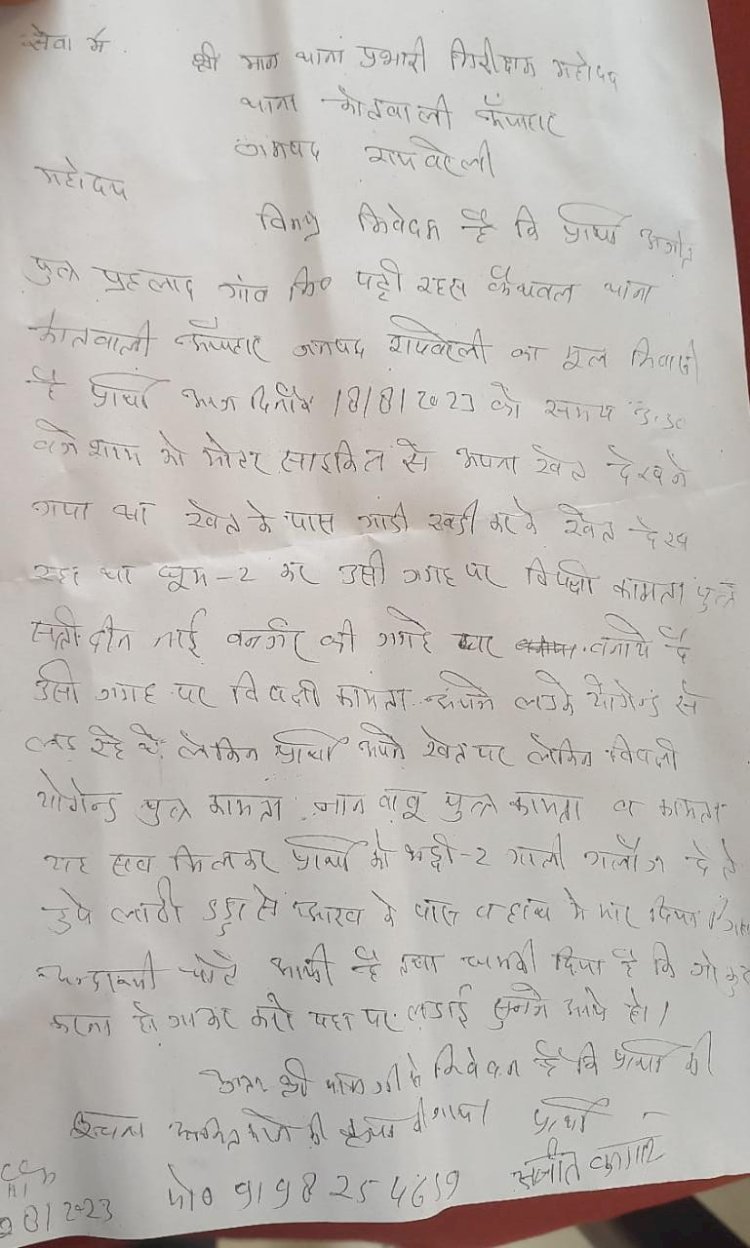 सेवा में
श्री मान थाना प्रभारी निरीक्षक महोदय
थाना कोतवाली ऊँचाहार
जनपद रायबरेली
महोदय
विनम्र निवेदन है कि प्रार्थी अजीत
पुत्र प्रहलाद गांव नि० पट्टी रहस कैथवल थाना
कोतवाली ऊँचाहार जनपद रायबरेली का मूल निवासी
है प्रार्थी आज दिनाँक 18/8/2023 को समय 5.30
बजे शाम को मोटर साइकिल से अपना खेत देखने
गया था खेत के पास गाडी खडी कर के खेत देख
रहा था घूम-2 कर उसी जगह पर विपक्षी कामता पुत्र
सती दीन नाई बनजर की जगहे पर बनाये है
उसी जगह पर विपक्षी कामता अपने लडके योगेन्द्र से
लड रहे थे लेकिन प्रार्थी अपने खेत पर लेकिन विपक्षी
योगेन्द्र पुत्र कामता ज्ञान बाबू पुत्र कामता व कामता
यह सब मिलकर प्रार्थी को भद्दी-2 गाली गलौज देते
हुये लाठी डन्डा से आख के पास व हाथ मे मार दिया
अन्दरूनी चोटे आयी है तथा धमकी दिया है कि जो कुछ
करना हो जाकर करो यहा पर लडाई सुनने आये हो।
अतः श्री मान जी से निवेदन है कि प्रार्थी की
सूचना अंकित करने की कृपा की जाय। प्रार्थी
मो० 9198254659 अजीत कुमार
8/2023